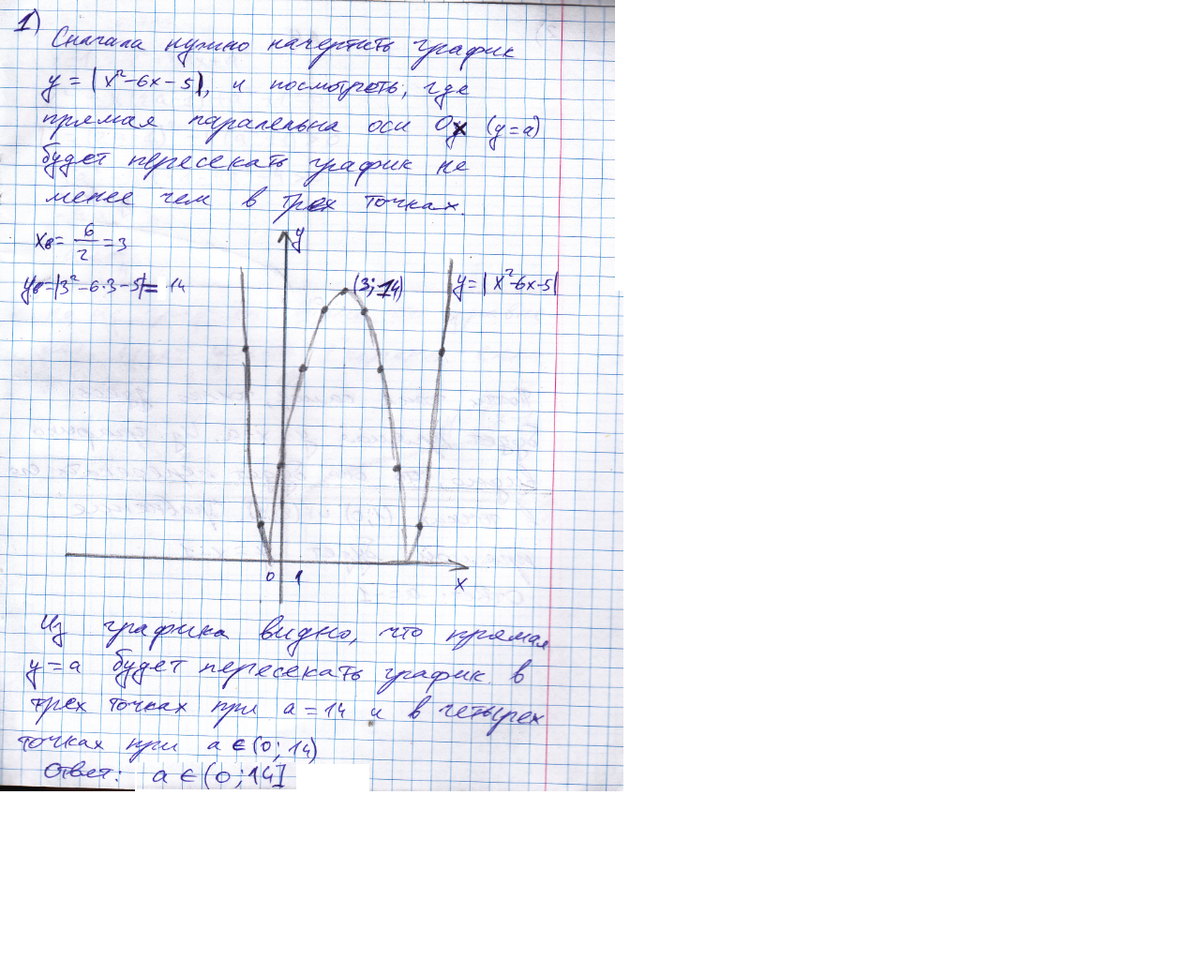 1) Сначала нужно начертить график
y = |x²-6x-5|, и посмотреть, где
прямая паралельна оси Ox (y=a)
будет пересекать график не
менее чем в трех точках.
xв = 6/2 = 3
yв=|3²-6·3-5|= 14
y
(3; 14)
y=|x²-6x-5|
0 1
x
Из графика видно, что прямая
y=a будет пересекать график в
трех точках при a=14 и в четырех
точках при a∈(0; 14)
Ответ: a∈(0;14]